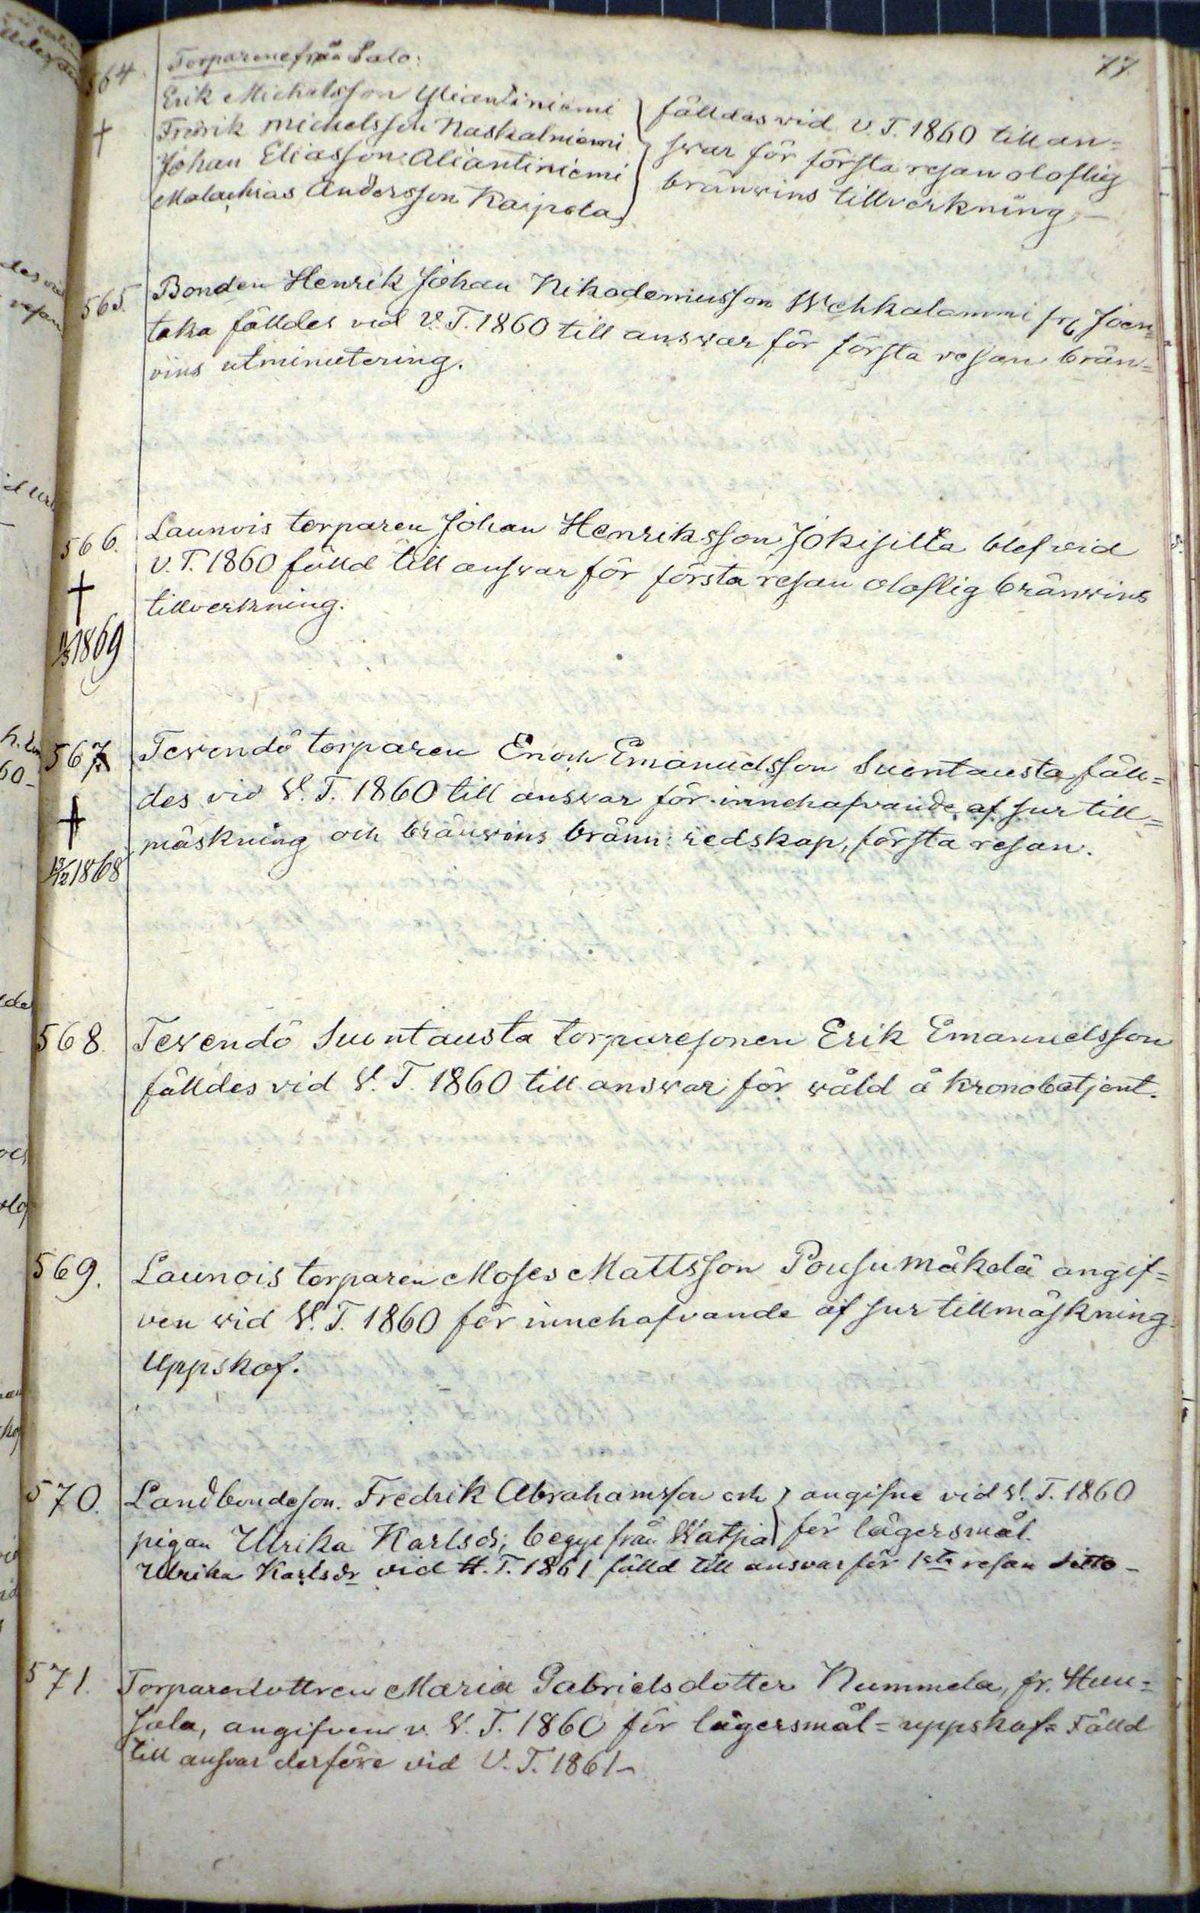 77
564 Torparene från Salo:
Erik Michelsson Yliantiniemi } fälldes vid V. T. 1860 till an=
† Fredrik Michelsson Naskalniemi } swar för första resan oloflig
Johan Eliasson Aliantiniemi } bränvins tillverkning –
Malachias Andersson Kaipola }
565. Bonden Henrik Johan Nikodemusson Wehkalammi fr. Joen=
taka fälldes vid V. T. 1860 till answar för första resan brän=
vins utminutering.
566. Launois torparen Johan Henriksson Jokisilta blef vid
† V. T. 1860 fälld till answar för första resan oloflig bränvins
tillverkning.
1869
567 Tevendö torparen Enoch Emanuelsson Suontausta, fäll=
† des vid V. T. 1860 till answar för innehafvande af sur till=
mäskning och bränvins bränn redskap, första resan.
12/12 1868
568 Tevendö Suontausta torparesonen Erik Emanuelsson
fälldes vid V. T. 1860 till answar för wåld å kronobetjent.
569. Launois torparen Moses Mattsson Pousu mäkelä angif=
ven vid V. T. 1860 för innehafvande af sur tillmäskning
Uppskof.
570. Landbondeson. Fredrik Abrahamsson och } angifne vid V. T. 1860
pigan Ulrika Karlsdr, begge från Watja } för lägersmål.
Ulrika Karlsdr vid H. T. 1861 fälld till answar för 1sta resan ditto –
571. Torparedottren Maria Gabrielsdotter Nummela, fr. Hun=
sala, angifven v. V. T. 1860 för lägersmål = uppskof = Fälld
till answar derföre vid V. T. 1861 –